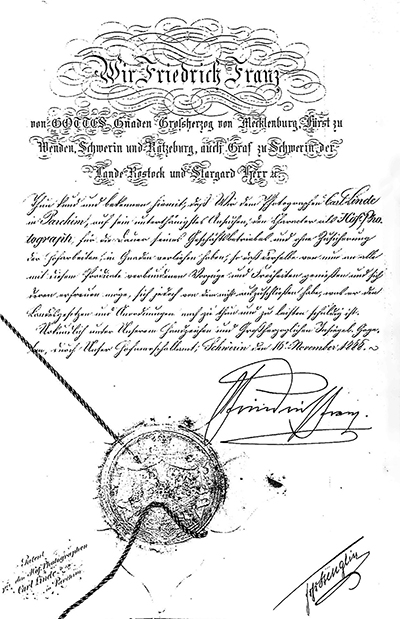 Wir Friedrich Franz
von GOTTES Gnaden Großherzog von Mecklenburg, Fürst zu
Wenden, Schwerin und Ratzeburg, auch Graf zu Schwerin, der
Lande Rostock und Stargard Herr ꝛc.
Thun kund und bekennen hiemit, daß Wir dem Photographen Carl Linde
in Parchim, auf sein unterthänigstes Ansuchen, den Charakter als Hof-Pho-
tograph, für die Dauer seines Geschäftsbetriebes und ohne Zusicherung
der Hofarbeiten, in Gnaden verliehen haben, so daß derselbe von nun an alle
mit diesem Prädicate verbundenen Vorzüge und Freiheiten genießen und sich
deren erfreuen möge, sich jedoch von dem nicht auszuschließen habe, was er den
Landesgesetzen und Anordnungen nach zu thun und zu leisten schuldig ist.
Urkundlich unter Unserem Handzeichen und Großherzoglichen Insiegel. Gege-
ben, durch Unser Hofmarschallamt, Schwerin den 16. November 1888.
Friedrich Franz.
Patent
für den Hof-Photographen
Carl Linde
in Parchim